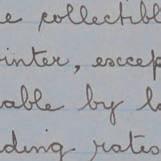 e collectibl
inter, excep
able by l
ding rates